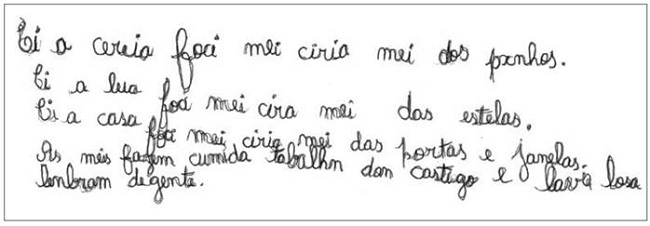 Ci a cereia foci mei ciria mei dos pxnhos.
Ci a lua foci mei cira mei das estelas.
Ci a casa foci mei ciria mei das portas e janelas.
As mẽis fazem cumida tabalhm dom castigo e lavã losa
lenbram degente.